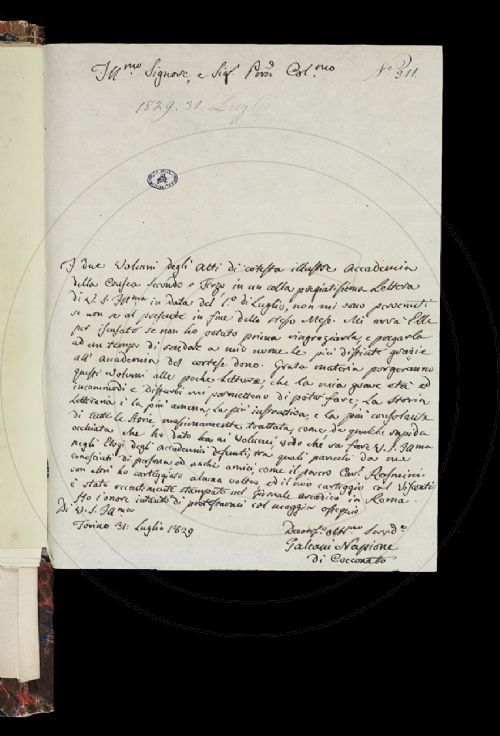 Ill.mo Signore, e Sig.r Pron Col.mo
N.o 311.
1829. 31 Luglio
I due Volumi degli Atti di cotesta illustre Accademia
della Crusca Secondo e Terzo in un colla pregiatissima Lettera
di V. S. Ill.ma in data del 1.o di Luglio, non mi sono pervenuti
se non se al presente in fine dello stesso Mese. Mi avrà Ella
per iscusato se non ho potuto prima ringraziarla, e pregarla
ad un tempo di rendere a mio nome le più distinte grazie
all' Accademia del cortese dono. Grata materia porgeranno
questi Volumi alle poche letture, che la mia grave età ed
incommodi e disturbi mi permettono di poter fare; la Storia
Letteraria è la più amena, la più istruttiva, e la più consolante
di tutte le Storie massimamente trattata, come da qualche rapida
occhiata che ho dato ha ai Volumi vedo che sa fare V. S. Ill.ma
negli Elogi degli Accademici defunti, tra quali parecchi da me
conosciuti di persona, ed anche amici, come il povero Cav.
con altri ho carteggiato alcuna volta, ed il mio carteggio col Visconti
è stato recentemente stampato nel Giornale Arcadico in Roma.
Ho l'onore intanto di protestarmi col maggior ossequio
Di V. S. Ill.ma
Torino 31. Luglio 1829
Devot.o obbl.mo Servid.e
Galeani Napione
di Cocconato